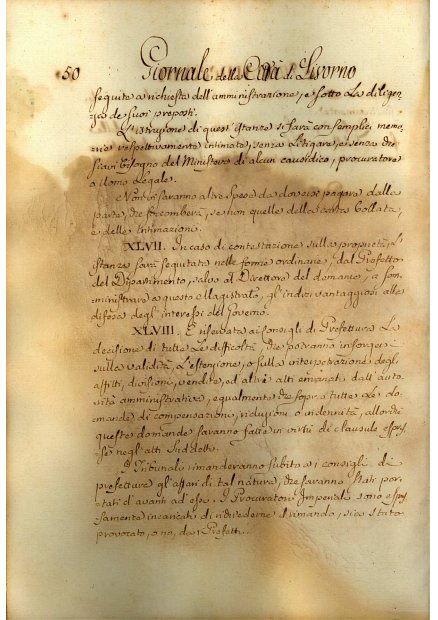 50 Giornale della Città di Livorno
seguite a richiesta dell'amministrazione, e sotto la diligen-
za de suoi preposti.
L'istruzione di queste istanze si farà con semplici memo-
rie respettivamente intimate, senza litigare, e senza che
siavi bisogno del Ministero di alcun causidico, procuratore
o Uomo Legale.
Non vi saranno altre spese da doversi pagare dalla
parte, che soccomberà, se non quelle della carta bollata,
e delle intimazioni.
XLVII. In caso di contestazione sulla proprietà, l'i-
stanza sarà seguitata nelle forme ordinarie, dal Prefetto
del Dipartimento, salvo al Direttore del demanio, a som-
ministrare a questo Magistrato, gl'indizi vantaggiosi alla
difesa degl'interessi del Governo.
XLVIII. È riservata ai Consigli di Prefettura la
decisione di tutte le difficoltà, che potranno insorgere
sulla validità, l'estensione, o sulla interpetrazione degli
affitti, divisioni, vendite, ed altri atti emanati dall'auto-
rità amministrativa, egualmente che sopra tutte le do-
mande di compensazioni, riduzioni o indennità, allorchè
queste domande saranno fatte in virtù di clausule espres-
se negli atti suddetti.
I Tribunali rimanderanno subito ai consigli di
prefetture gl'affari di tal natura, che saranno stati por-
tati d'avanti ad essi. I Procuratori Imperiali sono espres-
samente incaricati di richiederne il rimando, sia stato
provocato, o no, dai Prefetti.